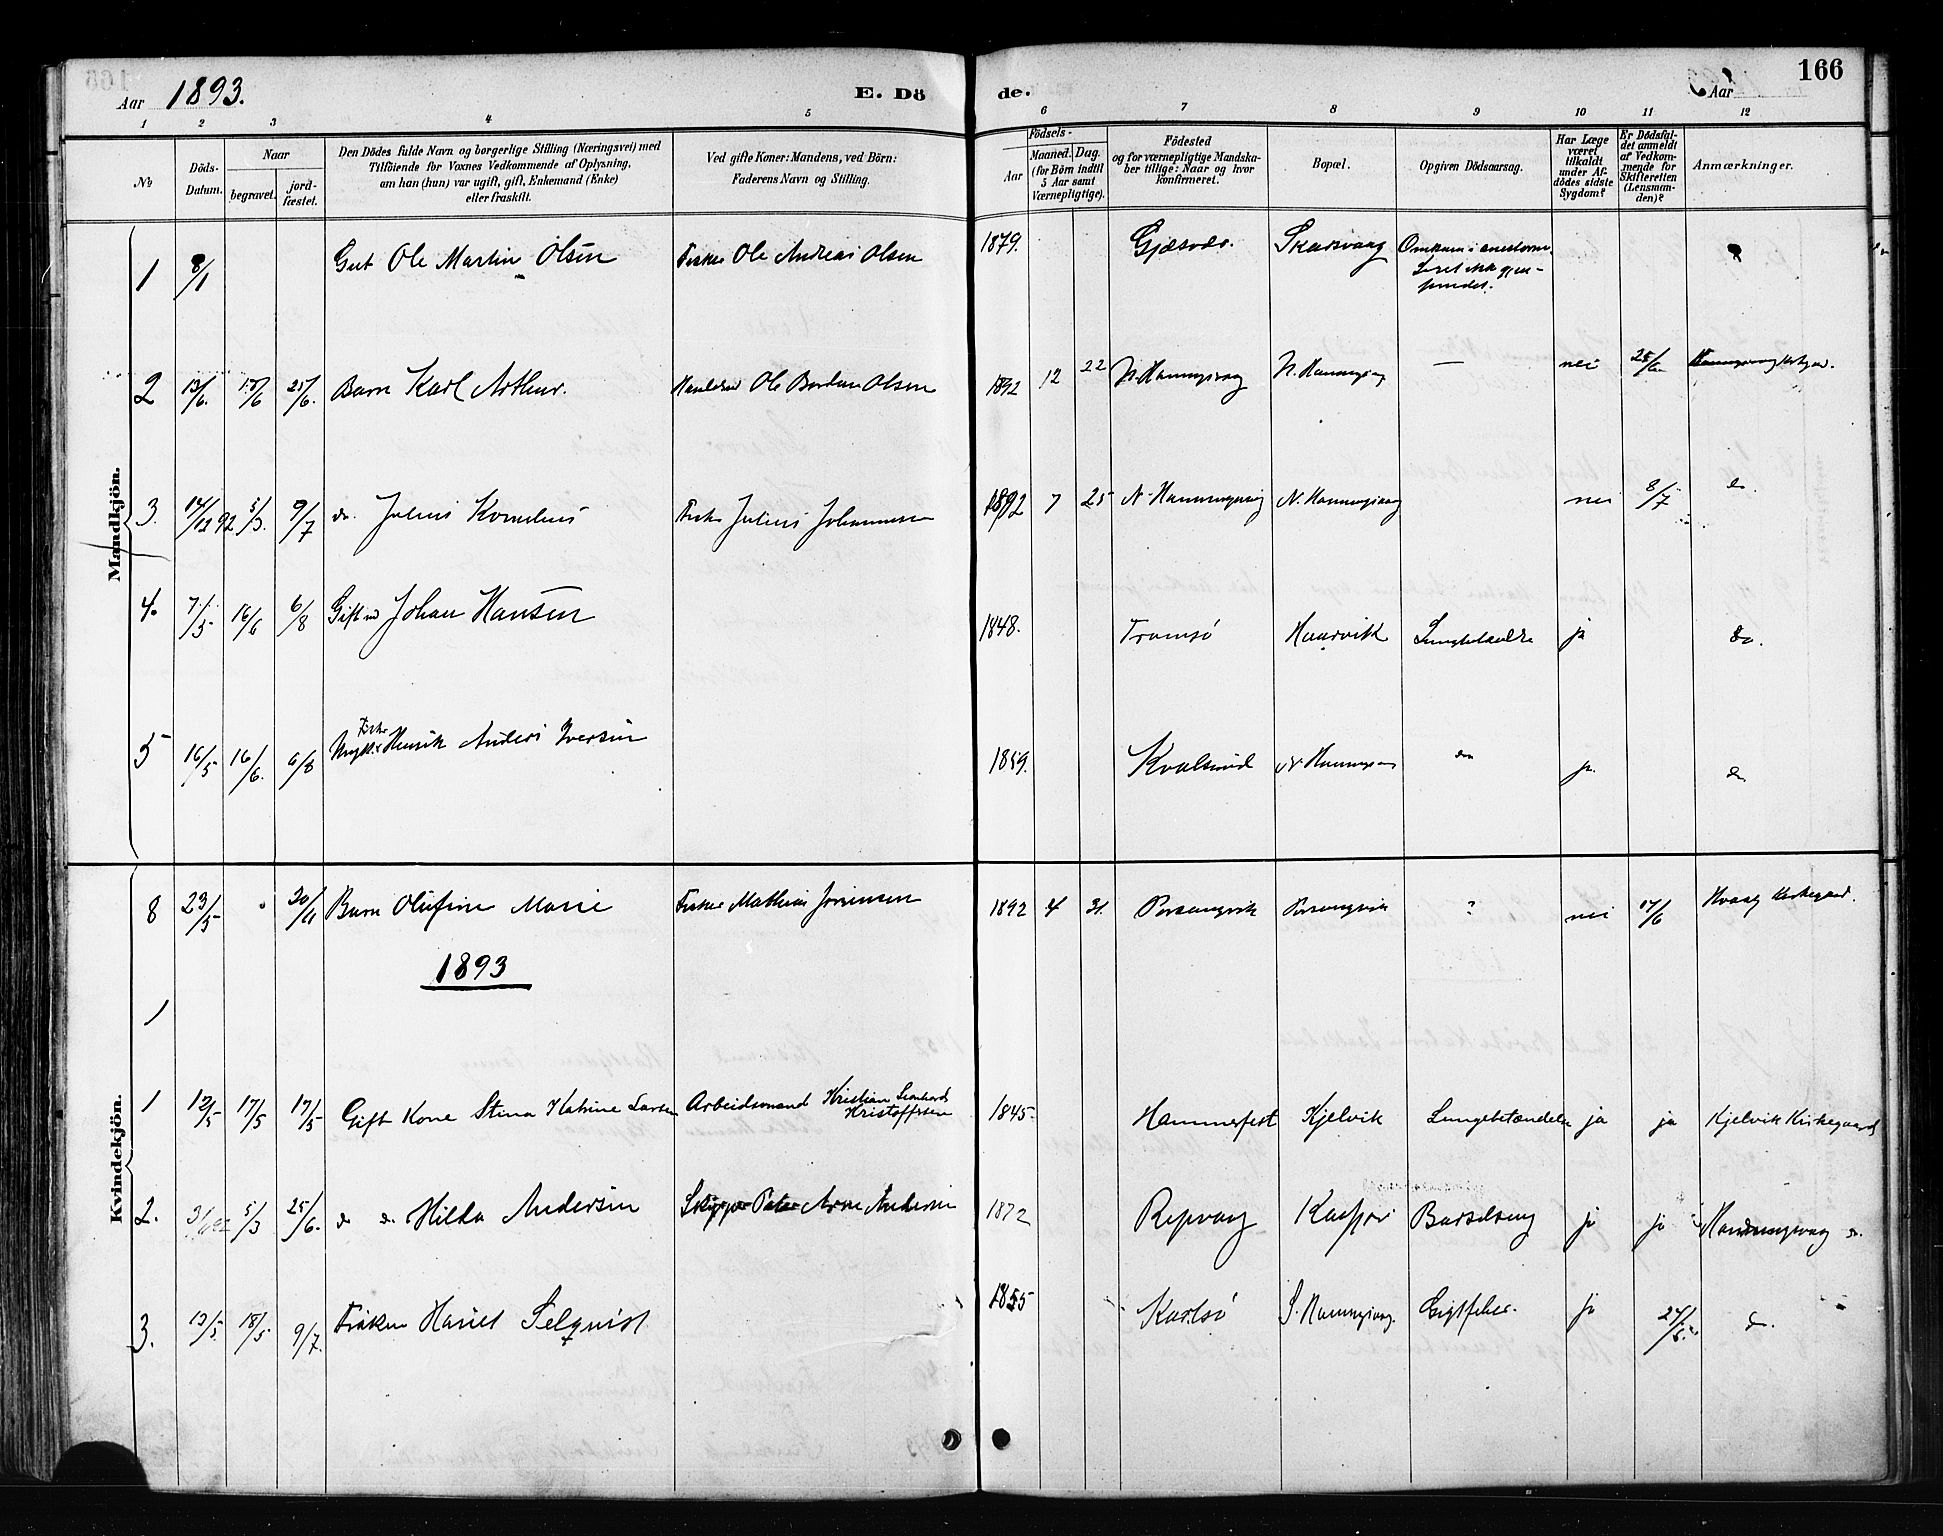 166
Aar 1893. E. Dö de. Aar
1 2 3 4 5 6 7 8 9 10 11 12
№
Döds-Datum.
Naar
begravet. jord-fæstet.
Den Dödes fulde Navn og borgerlige Stilling (Næringsvei) med
Tilföiende for Voxnes Vedkommende af Oplysning,
om han (hun) var ugift, gift, Enkemand (Enke)
eller fraskilt.
Ved gifte Koner: Mandens, ved Börn:
Faderens Navn og Stilling.
Födsels-
Aar Maaned. Dag.
(for Börn indtil
5 Aar samt
Værnepligtige).
Födested
og for værnepligtige Mandska-
ber tillige: Naar og hvor
konfirmeret.
Bopæl.
Opgiven Dödsaarsag.
Har Læge
været
tilkaldt
under Af-
dödes sidste
Sygdom?
Er Dödsfal-
det anmeldt
af Vedkom-
mende for
Skifteretten
(Lensman-
den)?
Anmærkninger.
Mandkjön.
1 8/1 Gut Ole Martin Olsen Fisker Ole Andreas Olsen 1879. Gjæsvær. Skarsvaag Omkom i
2 13/6. 17/6 25/6. Barn Karl Arthur. Ole Olsen 1892 12 22 N. Honningsvaag N. Honningsvaag — nei 25/6 Honningsvaag Kirkgd.
3. 14/12 92 5/3. 9/7 do. Julius Kornelius Fisker Julius Johannesen 1892 7 25 N. Honningsvaag N. Honningsvaag nei 8/7 do.
4. 7/5 16/6 6/8 Gift md Johan Hansen 1848. Tromsö Lungebetændelse ja do.
5 16/5 16/6. 6/8 Ungk. Fisker Henrik Anders Iversen 1859. Kvalsund N. Honningsvaag do ja. do
Kvindekjön.
8 23/5 " 20/11 Barn Olufine Marie Fisker Mathias Jörgensen 1892 31. Porsangvik Porsangvik ? nei 17/6 Hvaag Kirkegaard.
1893
1
1 12/5 17/5 17/5 Gift Kone Stina Katrine Larsen Arbeidsmand Kristian Leonhard Kristoffersen 1845. Hammerfest Kjelvik Lungebetændelse ja ja Kjelvik Kirkegaard
2. 5/3 25/6. do do. Hilda Andersen Skipper Peter Arne Andersen 1872 Repvaag Barselseng ja ja Honningsvaag do.
3. 13/5 18/5 9/7. Fröken Hariet Selqvist 1855 Karlsö S. Honningsvaag. Gigtfeber. ja 24/5. do.